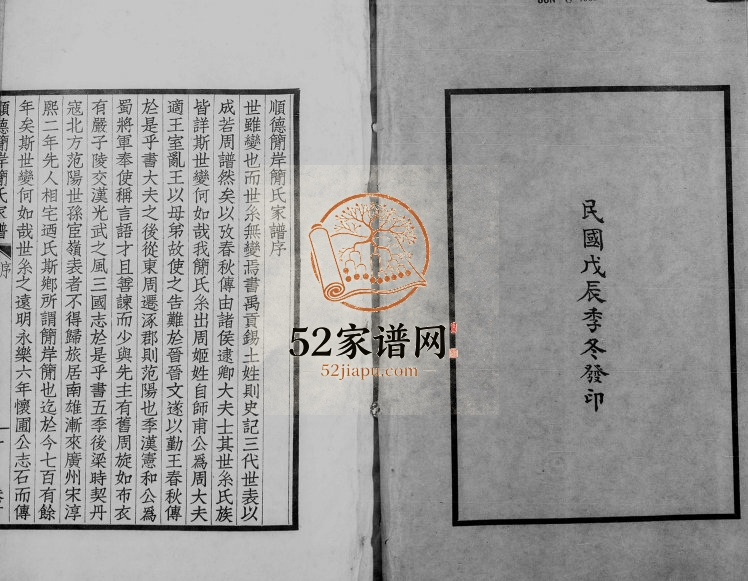 民國戊辰季冬發印
順德簡岸簡氏家譜序
世雖變也而世系無變焉書禹貢錫土姓則史記三代世表以
成若周譜然矣以攷春秋傳由諸侯逮卿大夫士其世系氏族
皆詳斯世變何如哉我簡氏系出周姬姓自師甫公爲周大夫
適王室亂王以母弟故使之告難於晉晉文遂以勤王春秋傳
於是乎書大夫之後從東周遷涿郡則范陽也季漢憲和公爲
蜀將軍奉使稱言語才且善諫而少與先主有舊周旋如布衣
有嚴子陵交漢光武之風三國志於是乎書五季後梁時契丹
寇北方范陽世孫宦嶺表者不得歸旅居南雄漸來廣州宋淳
熙二年先人相宅迺氏斯鄉所謂簡岸簡也迄於今七百有餘
年矣斯世變何如哉世系之遠明永樂六年懷圃公志石而傳
順德簡岸簡氏家譜
序
52家谱网
52jiapu.com